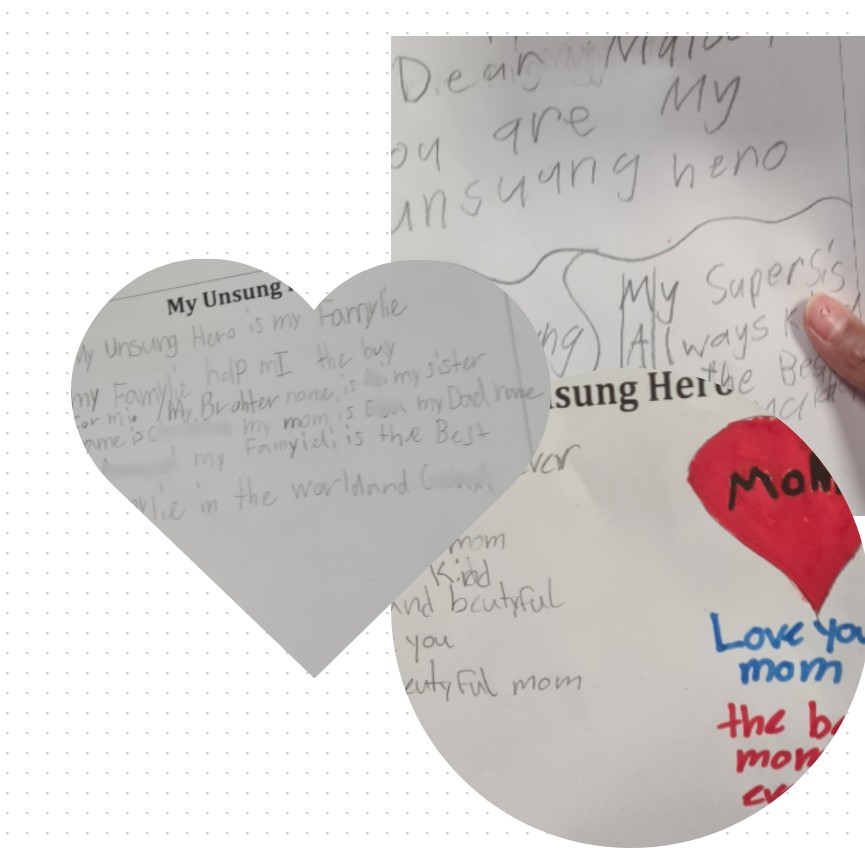 Dear
ou are My
unsuung hero
My Supersis
Allways
the Bes
My Unsung
My Unsung Hero is my Famylie
my Famylie help mI the buy
For mie My Brohter name is my sister
ame is my mom is my Dad name
my Famyieli is the Best
lie in the worldand
sung Hero
ver
mom
Kind
and beutyful
you
eutyFul mom
Mom
Love you
mom
the be
mom
ev